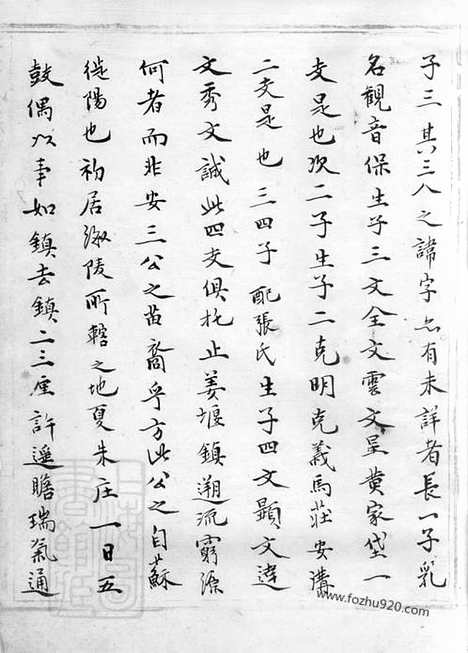 子三其三八之諱字亦有未詳者長一子乳
名觀音保生子三文全文雲文星黄家垈一
支是也次二子生子二克明克義馬莊安
二支是也三四子配張氏生子四文顯文達
文秀文誠此四支俱托止姜堰鎮遡流窮源
何者而非安三公之苗裔乎方此公之自蘇
徙陽也初居海陵所轄之地夏朱庄一日五
鼓偶以事如鎮去鎮二三里許遥瞻瑞氣通
www.fozhu920.com